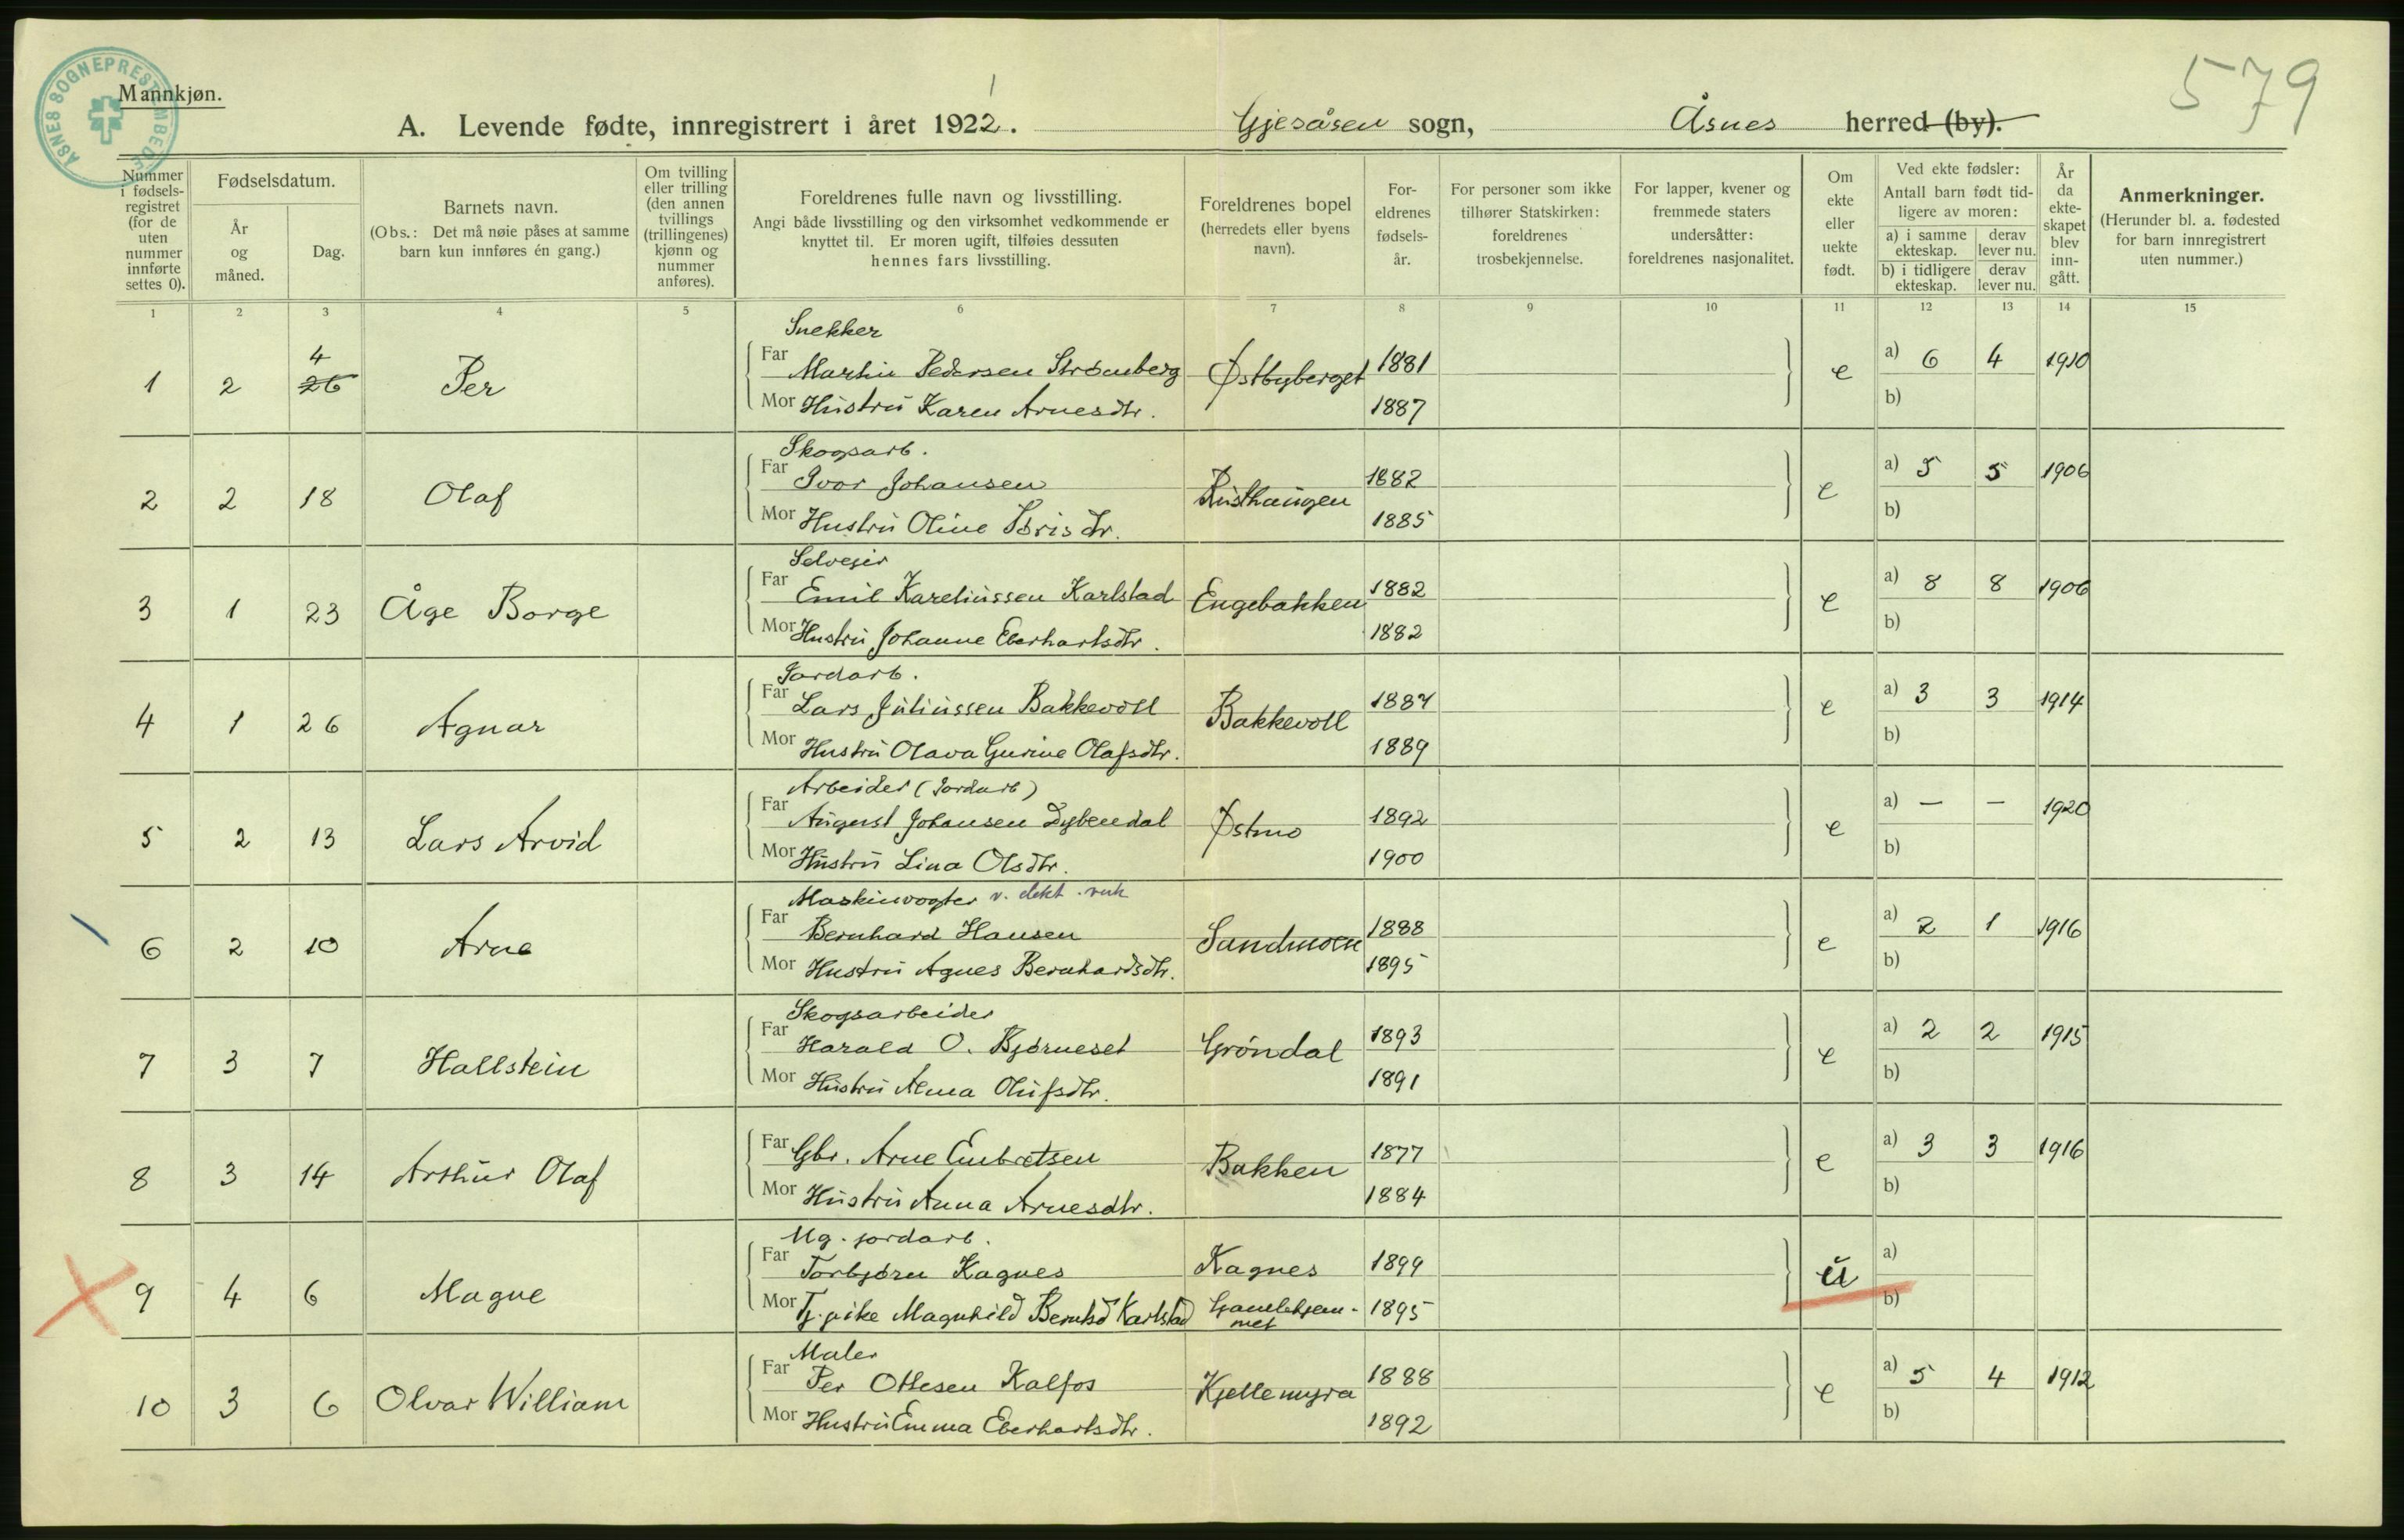 ÅSNES SOGNEPRESTEMBEDE
Mannkjøn.
579
1
A. Levende fødte, innregistrert i året 1922. Gjesåsen sogn, Åsnes herred (by).
Nummer i fødsels-registret (for de uten nummer innførte settes 0).
Fødselsdatum.
År og måned.
Dag.
Barnets navn.
(Obs.: Det må nøie påses at samme barn kun innføres én gang.)
Om tvilling eller trilling (den annen tvillings (trillingenes) kjønn og nummer anføres).
Foreldrenes fulle navn og livsstilling.
Angi både livsstilling og den virksomhet vedkommende er knyttet til. Er moren ugift, tilføies dessuten hennes fars livsstilling.
Foreldrenes bopel (herredets eller byens navn).
For-eldrenes fødsels-år.
For personer som ikke tilhører Statskirken: foreldrenes trosbekjennelse.
For lapper, kvener og fremmede staters undersåtter: foreldrenes nasjonalitet.
Om ekte eller uekte født.
Ved ekte fødsler:
Antall barn født tid-ligere av moren:
a) i samme ekteskap. derav lever nu.
b) i tidligere ekteskap. derav lever nu.
År da ekte-skapet blev inn-gått.
Anmerkninger.
(Herunder bl. a. fødested for barn innregistrert uten nummer.)
1 2 3 4 5 6 7 8 9 10 11 12 13 14 15
Snekker
1 2 4 26 Per Far Martin Pedersen Strömberg Østbyberget 1881 e a) 6 4 1910
Mor Hustru Karen Arnesdtr. 1887 b)
Skogsarb.
2 2 18 Olaf Far Ivar Johansen Risthaugen 1882 e a) 5 5 1906
Mor Hustru Oline Torisdtr. 1885 b)
Selveier
3 1 23 Åge Borge Far Emil Kareliussen Karlstad Engebakken 1882 e a) 8 8 1906
Mor Hustru Johanne Eberhartsdtr. 1882 b)
Jordarb.
4 1 26 Agnar Far Lars Juliussen Bakkevoll Bakkevoll 1887 e a) 3 3 1914
Mor Hustru Olava Gurine Olafsdtr. 1889 b)
Arbeider (Jordarb)
5 2 13 Lars Arvid Far August Johansen Dybendal Østmo 1892 e a) — — 1920
Mor Hustru Lina Olsdtr. 1900 b)
Maskinvogter v. elekt. verk
6 2 10 Arne Far Bernhard Hansen Sandmoen 1888 e a) 2 1 1916
Mor Hustru Agnes Bernhardsdtr. 1895 b)
Skogsarbeider
7 3 7 Hallstein Far Harald O. Bjørneset Gröndal 1893 e a) 2 2 1915
Mor Hustru Alma Olufsdtr. 1891 b)
8 3 14 Arthur Olaf Far Gbr. Arne Embretsen Bakken 1877 e a) 3 3 1916
Mor Hustru Anna Arnesdtr. 1884 b)
Ug. jordarb.
9 4 6 Magne Far Torbjørn Kagnes Kagnes 1899 u a)
Mor Tj. pike Magnhild Bernhd Karlstad Gamlehjem-met 1895 b)
Maler
10 3 6 Olvar William Far Per Ottesen Kalfos Kjellemyra 1888 e a) 5 4 1912
Mor Hustru Emma Eberhartsdtr. 1892 b)